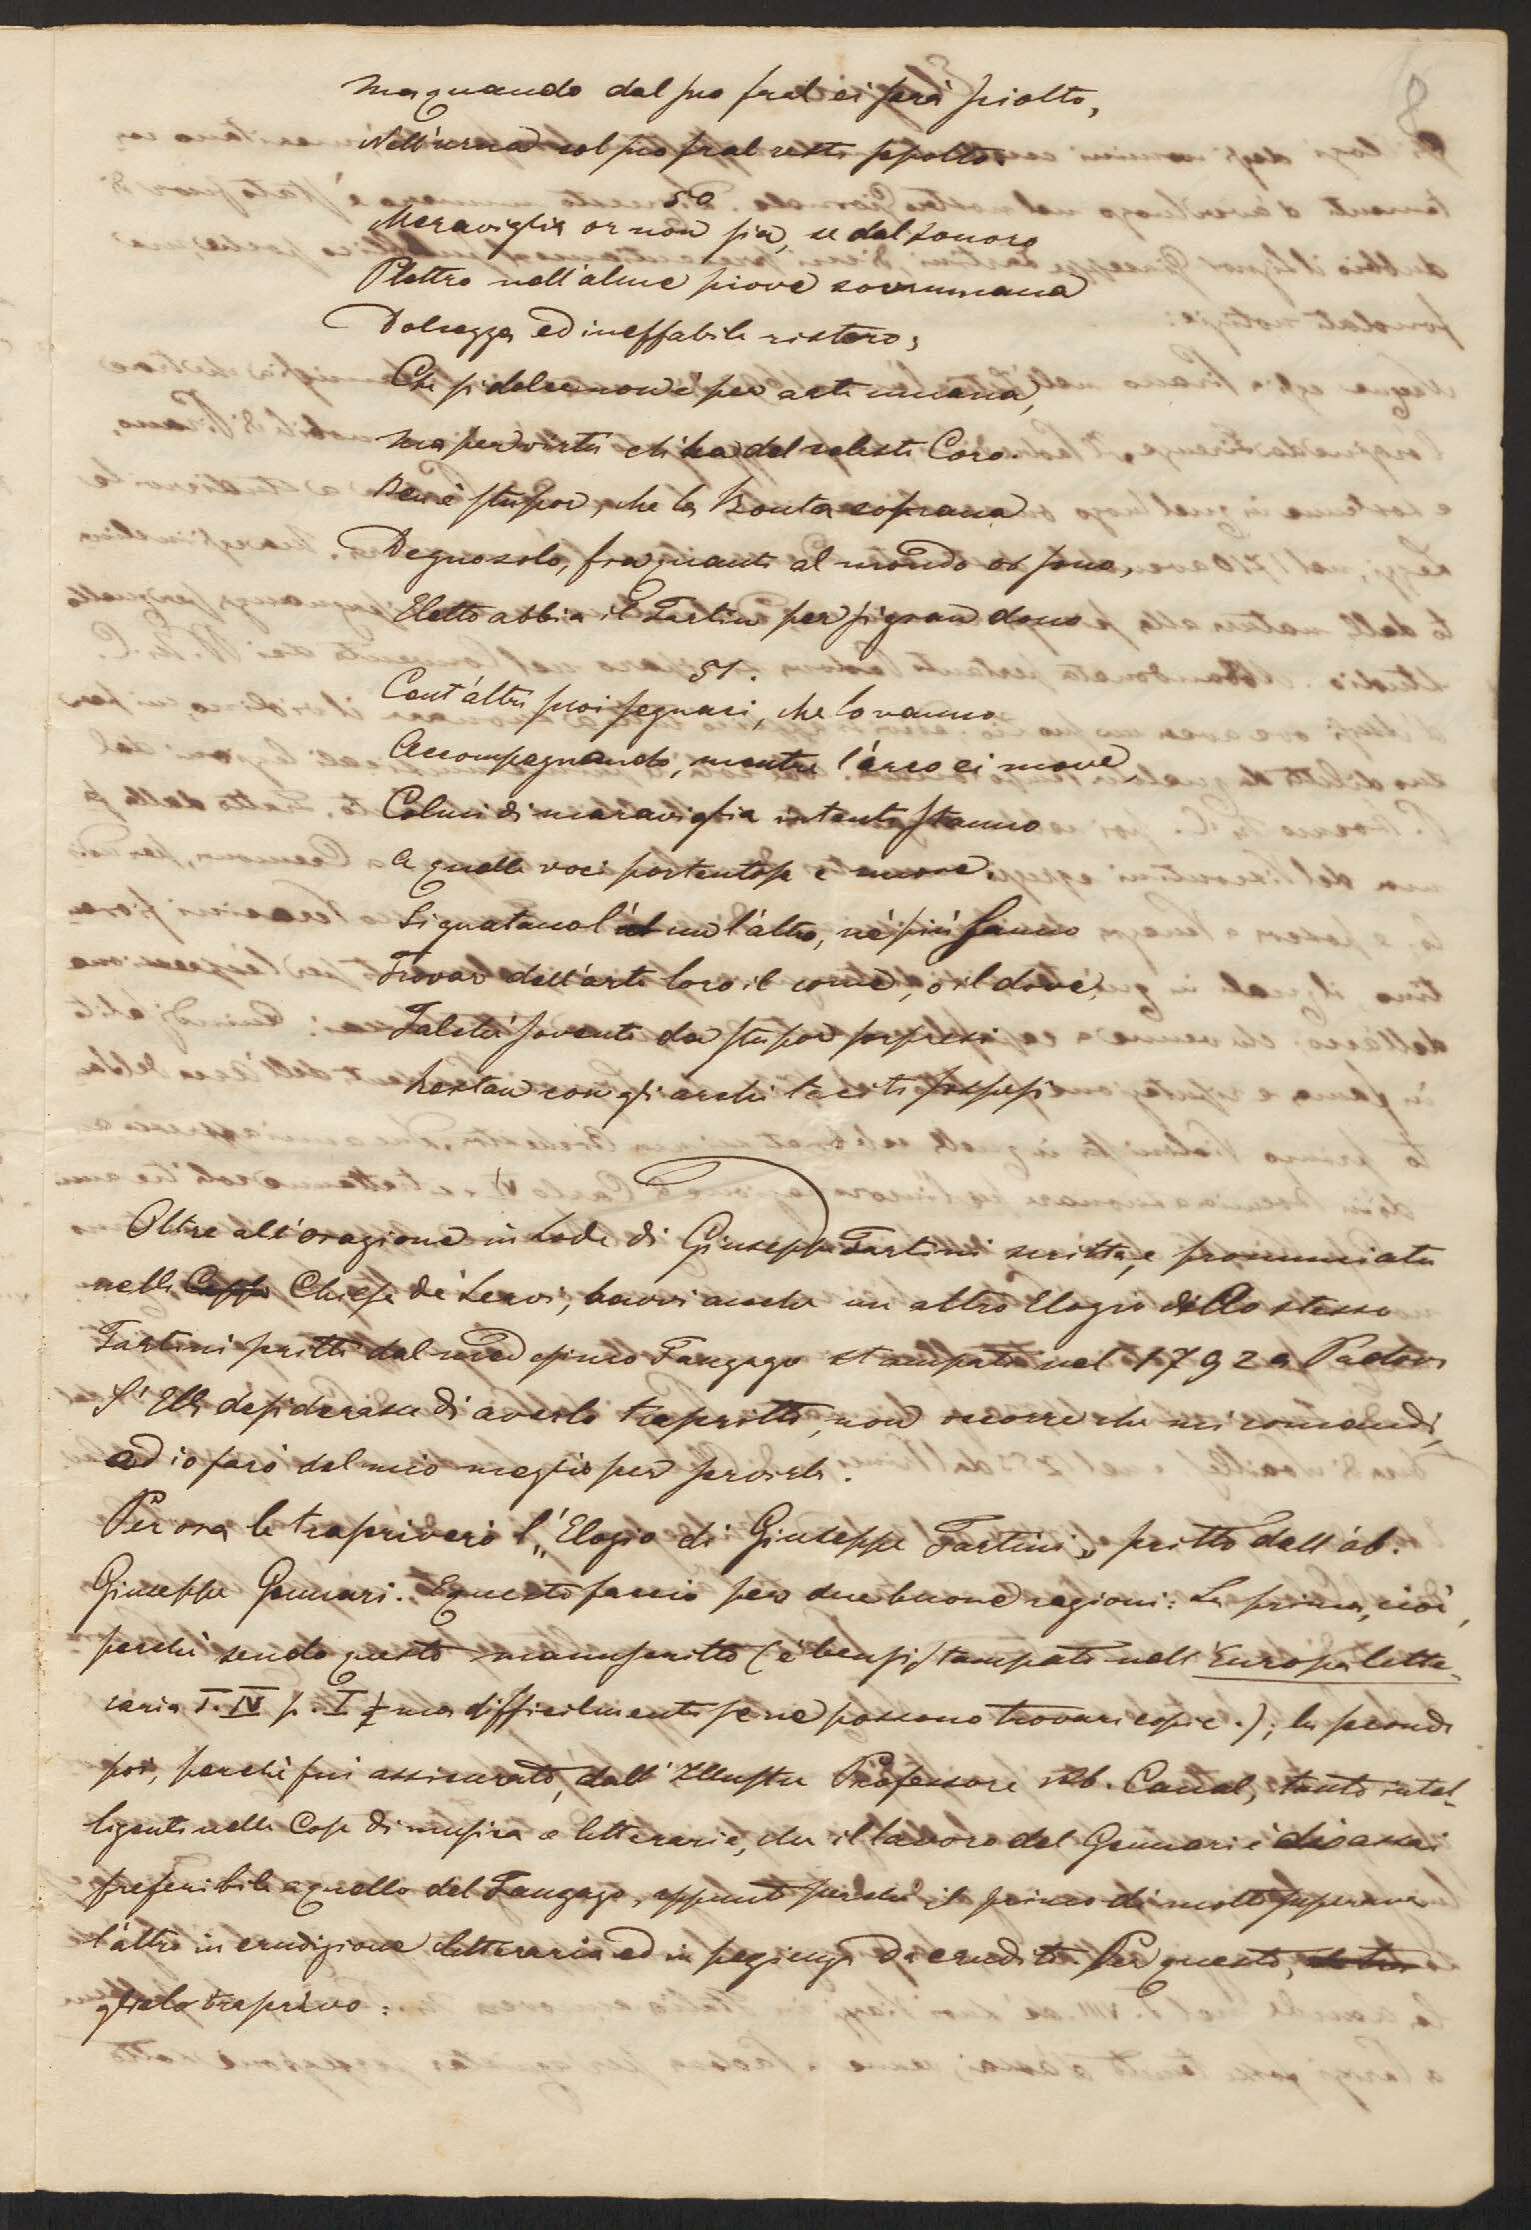 8
Ma quando dal suo fral ei sarà sciolto,
Nell'urna col suo fral resti sepolto.
50
Meraviglia or non sia, se dal sonoro
Plettro nell'alme piove sovrumana
Dolcezza ed ineffabile ristoro;
Che sì dolce non è per arte umana,
Ma per virtù ch'ha del celeste Coro.
Ben è stupor, che la Bontà soprana
Degno solo, fra quanti al mondo or sono,
Eletto abbia il Tartin per sì gran dono
51.
Cent'altri suoi seguaci, che lo vanno
Accompagnando, mentre l'arco ei move,
Colmi di maraviglia intenti stanno
A quelle voci portentose e nuove
Si guatano l'un l'altro, nè più sanno
Trovar dell'arte loro il come, o il dove,
Talchè sovente da stupor sorpresi
Restan con gli archi taciti sospesi
Oltre all'orazione in Lode di Giuseppe Tartini scritta, e pronunciata
nella Cappe Chiesa de' Servi, havvi anche un altro Elogio dello stesso
Tartini scritto dal medesimo Fanzago stampato nel 1792 a Padova
S'Ella desiderasse di averlo trascritto, non occorre che mi comandi,
ed io farò del mio meglio per servirla.
Per ora le trascriverò l'„Elogio di Giuseppe Tartini„ scritto dall'ab.
Giuseppe Gennari. E questo faccio per due buone ragioni: La prima, cioè,
perchè sendo questo manuscritto (è bensì stampato nell'Europa lette-
raria T. IV p. I ma difficilmente se ne possono trovare copie.); la seconda
poi, perchè fui assicurato, dall'Illustre Professore Ab. Canal, tanto intel-
ligente nelle Cose di musica e letterarie, che il lavoro del Gennari è di assai
preferibile a quello del Fanzago, appunto perchè il primo di molto superava
l'altro in erudizione letteraria ed in scienza da erudito. Per questo,
glielo trascrivo: